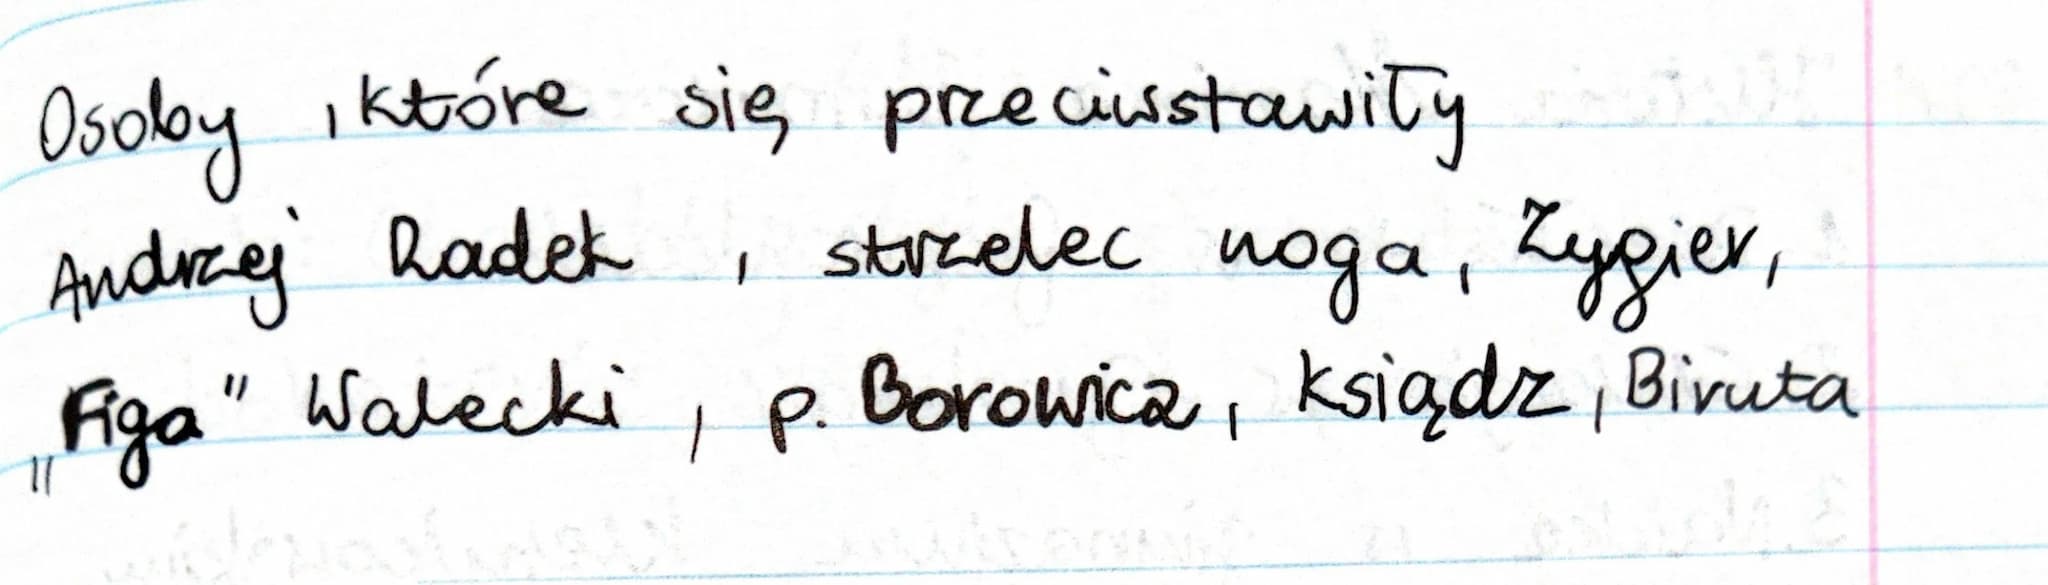 Osoby , które się przeciwstawiły
Andrzej Radek , strzelec noga, Zygier,
„Figa" Walecki , p. Borowicz, ksiądz, Biruta